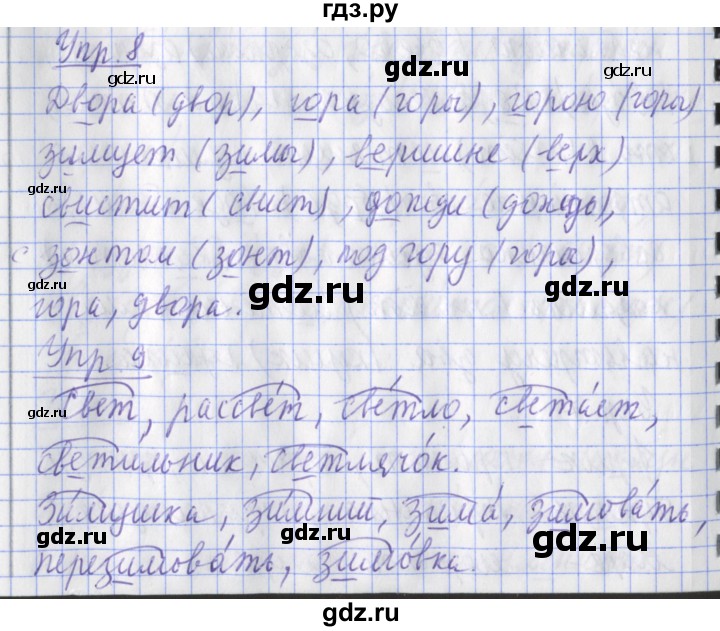 гдз.ру
Упр. 8
gdz.ru
gdz.ru
gdz.ru
Двора (двор), гора (горы), горою (горы)
зимует (зимы), вершине (верх)
gdz.ru
свистит (свист), дожди (дождь),
с зонтом (зонт), под гору (горы),
gdz.ru
gdz.ru
гора, двора.
gdz.ru
Упр. 9
gdz.ru
Свет, рассвет, светло, светает,
светильник, светлячок.
Зимушка, зимний, зима, зимовать,
gdz.ru
gdz.ru
gdz.ru
перезимовать, зимовка.
gdz.ru
gdz.ru